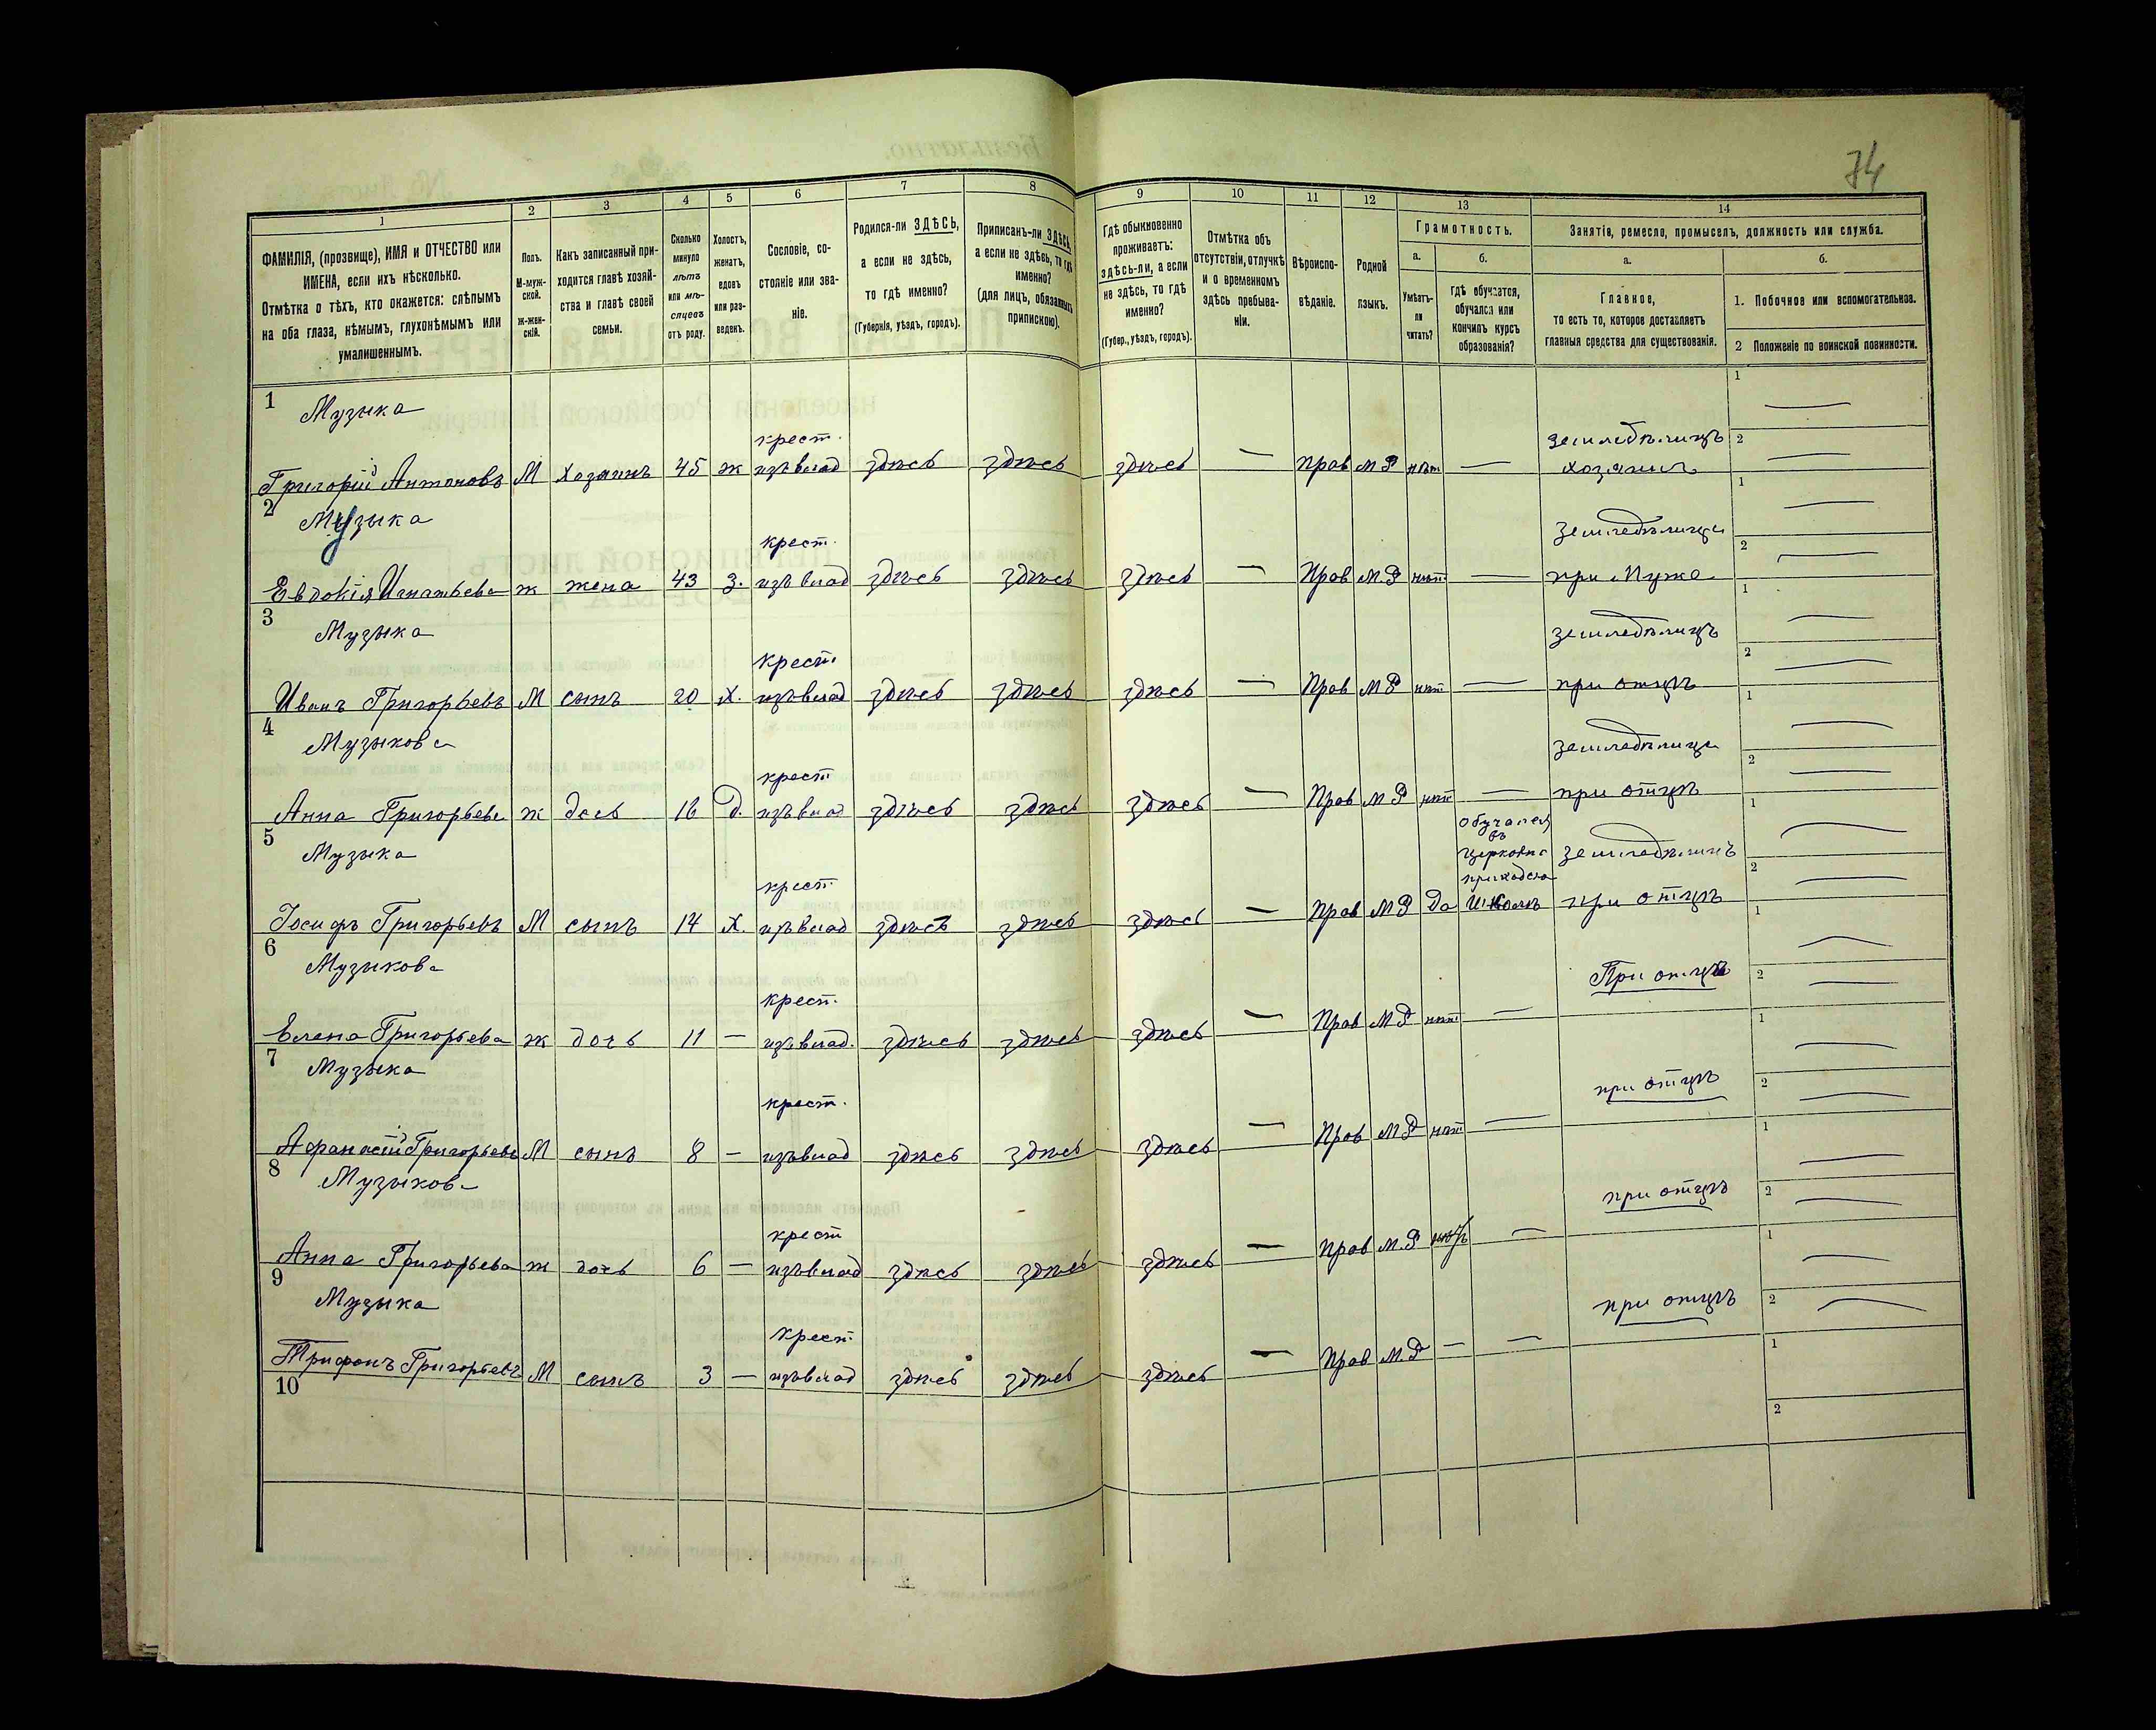 74
1
2
3
4
5
6
7
8
9
10
11
12
13
14
ФАМИЛІЯ, (прозвище), ИМЯ и ОТЧЕСТВО или
ИМЕНА, если ихъ нѣсколько.
Отмѣтка о тѣхъ, кто окажется: слѣпымъ
на оба глаза, нѣмымъ, глухонѣмымъ или
умалишеннымъ.
Полъ.
М-муж-
ской.
Ж-жен-
скій.
Какъ записанный при-
ходится главѣ хозяй-
ства и главѣ своей
семьи.
Сколько
минуло
лѣтъ
или мѣ-
сяцевъ
отъ роду.
Холостъ,
женатъ,
вдовъ
или раз-
веденъ.
Сословіе, со-
стояніе или зва-
ніе.
Родился-ли ЗДѢСЬ,
а если не здѣсь,
то гдѣ именно?
(Губернія, уѣздъ, городъ).
Приписанъ-ли ЗДѢСЬ,
а если не здѣсь, то гдѣ
именно?
(для лицъ, обязанныхъ
припискою).
Гдѣ обыкновенно
проживаетъ:
здѣсь-ли, а если
не здѣсь, то гдѣ
именно?
(Губер., уѣздъ, городъ).
Отмѣтка объ
отсутствіи, отлучкѣ
и о временномъ
здѣсь пребыва-
ніи.
Вѣроиспо-
вѣданіе.
Родной
языкъ.
Грамотность.
а.
Умѣетъ-
ли
читать?
б.
гдѣ обучается,
обучался или
кончилъ курсъ
образованія?
Занятіе, ремесло, промыселъ, должность или служба.
а.
Главное,
то есть то, которое доставляетъ
главныя средства для существованія.
б.
1. Побочное или вспомогательное.
2 Положеніе по воинской повинности.
1 Музыка
крест. земледѣлецъ
Григорій Антоновъ М хозяинъ 45 ж изъ влад здѣсь здѣсь здѣсь — Прав М Р нѣт — хозяинъ
2 Музыка
крест. земледѣлица
Евдокія Игнатьева ж жена 43 з. изъ влад здѣсь здѣсь здѣсь — Прав М.Р нѣт — при Мужѣ
3 Музыка
крест. земледѣлецъ
Иванъ Григорьевъ М сынъ 20 х. изъ влад здѣсь здѣсь здѣсь — Прав М Р нѣт — при отцѣ
4 Музыкова
крест земледѣлица
Анна Григорьева ж дочь 16 д. изъ влад здѣсь здѣсь здѣсь — Прав М Р нѣт — при отцѣ
5 Музыка
крест. обучался
въ
церковно земледѣлецъ
приходско
Іосифъ Григорьевъ М сынъ 14 х. изъ влад здѣсь здѣсь здѣсь — Прав М Р да школѣ при отцѣ
6 Музыкова
крест. При отцѣ
Елена Григорьева ж дочь 11 — изъ влад. здѣсь здѣсь здѣсь — Прав М.Р нѣт —
7 Музыка
крест. при отцѣ
Афанасій Григорьевъ М сынъ 8 — изъ влад здѣсь здѣсь здѣсь — Прав М Р нѣт —
8 Музыкова
крест при отцѣ
Анна Григорьева ж дочь 6 — изъ влад здѣсь здѣсь здѣсь — Прав М.Р нѣтъ —
9 Музыка
крест. при отцѣ
Трифонъ Григорьевъ М сынъ 3 — изъ влад здѣсь здѣсь здѣсь — Прав М.Р — —
10